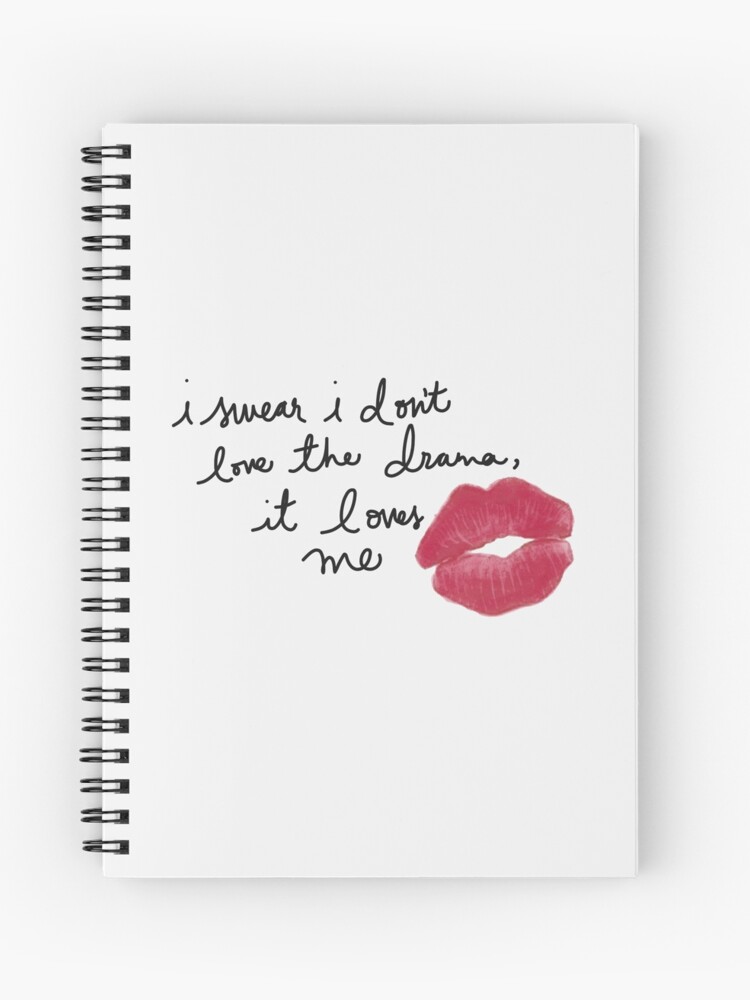 i swear i don't
love the drama,
it loves
me